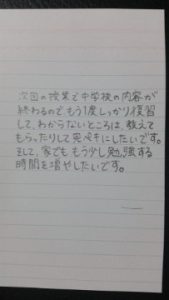 次回の授業で中学校の内容が
終わるのでもう1度しっかり復習
して、わからないところは、教えて
もらったりして完ペキにしたいです。
そして、家でももう少し勉強する
時間を増やしたいです。